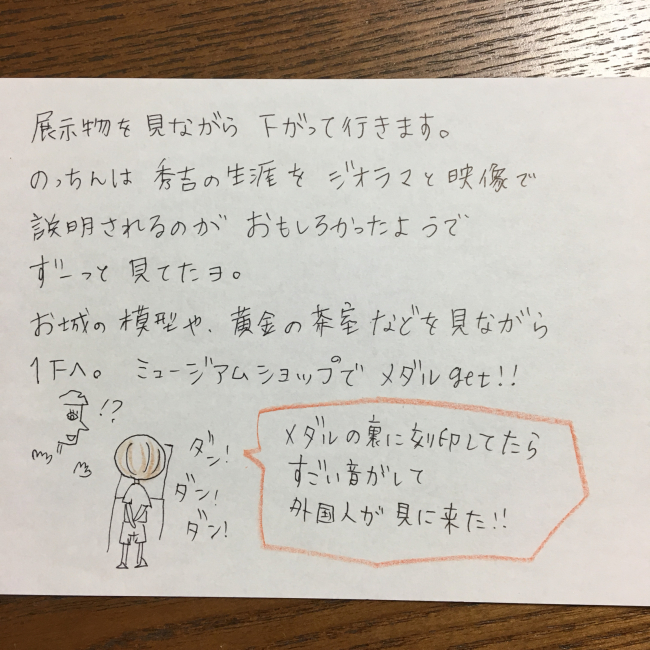 展示物を見ながら 下がって行きます。
のっちんは 秀吉の生涯を ジオラマと映像で
説明されるのが おもしろかったようで
ずーっと 見てたヨ。
お城の模型や、黄金の茶室などを見ながら
1Fへ。 ミュージアムショップで メダルget!!
!?
ダン!
ダン!
ダン!
メダルの裏に刻印してたら
すごい音がして
外国人が見に来た!!